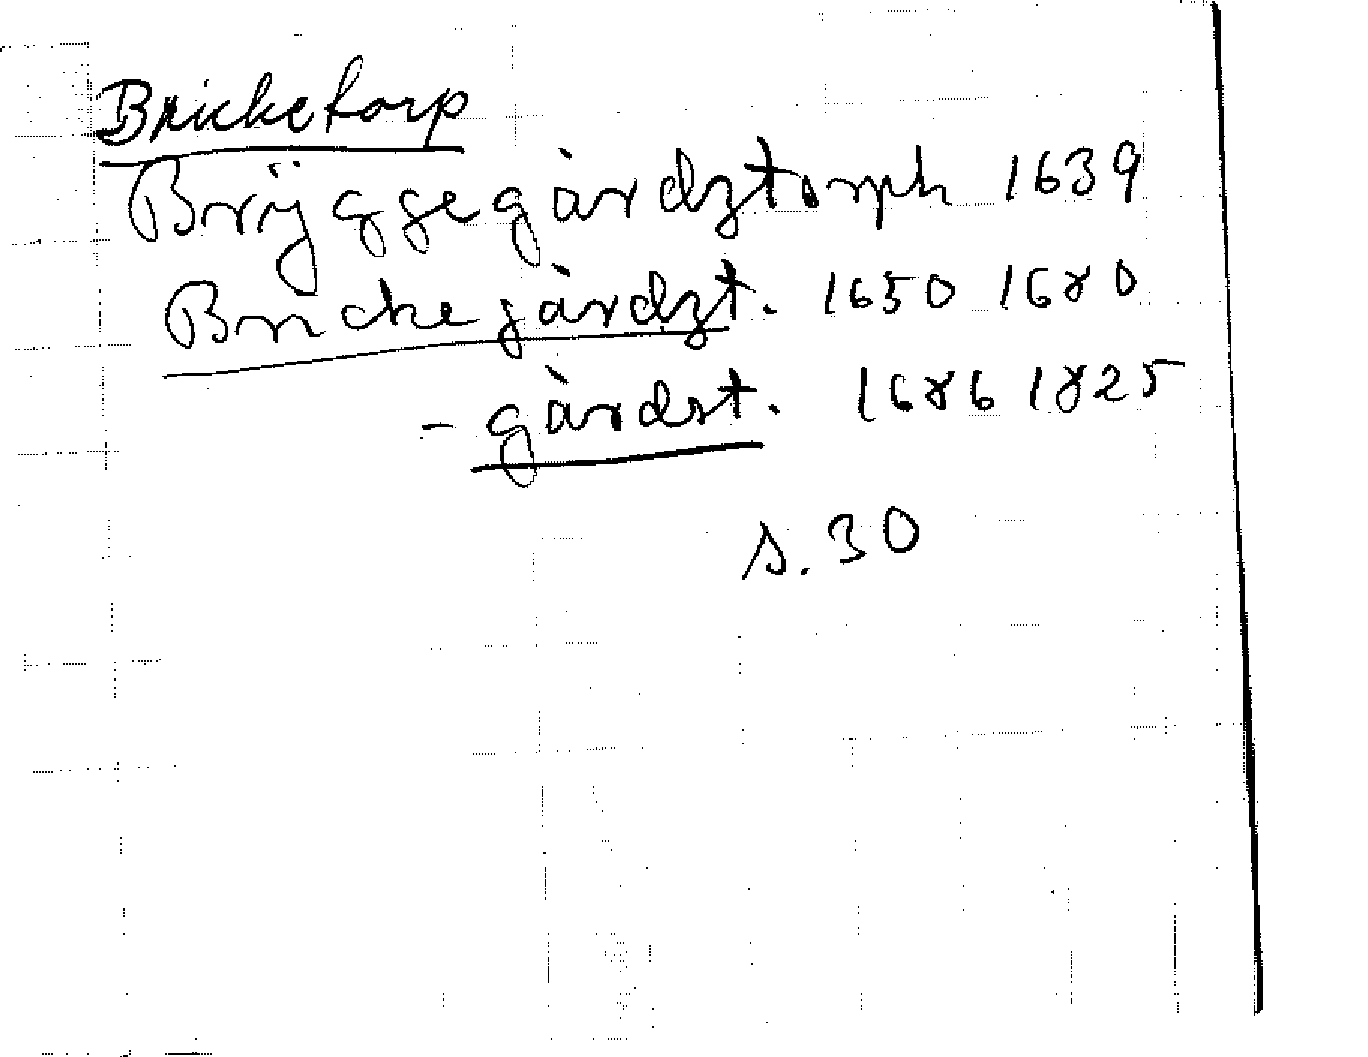 Bricketorp
Brÿggegårdztorph 1639
Brickegårdzt. 1650 1680
- gårdst. 1686 1825
s. 30